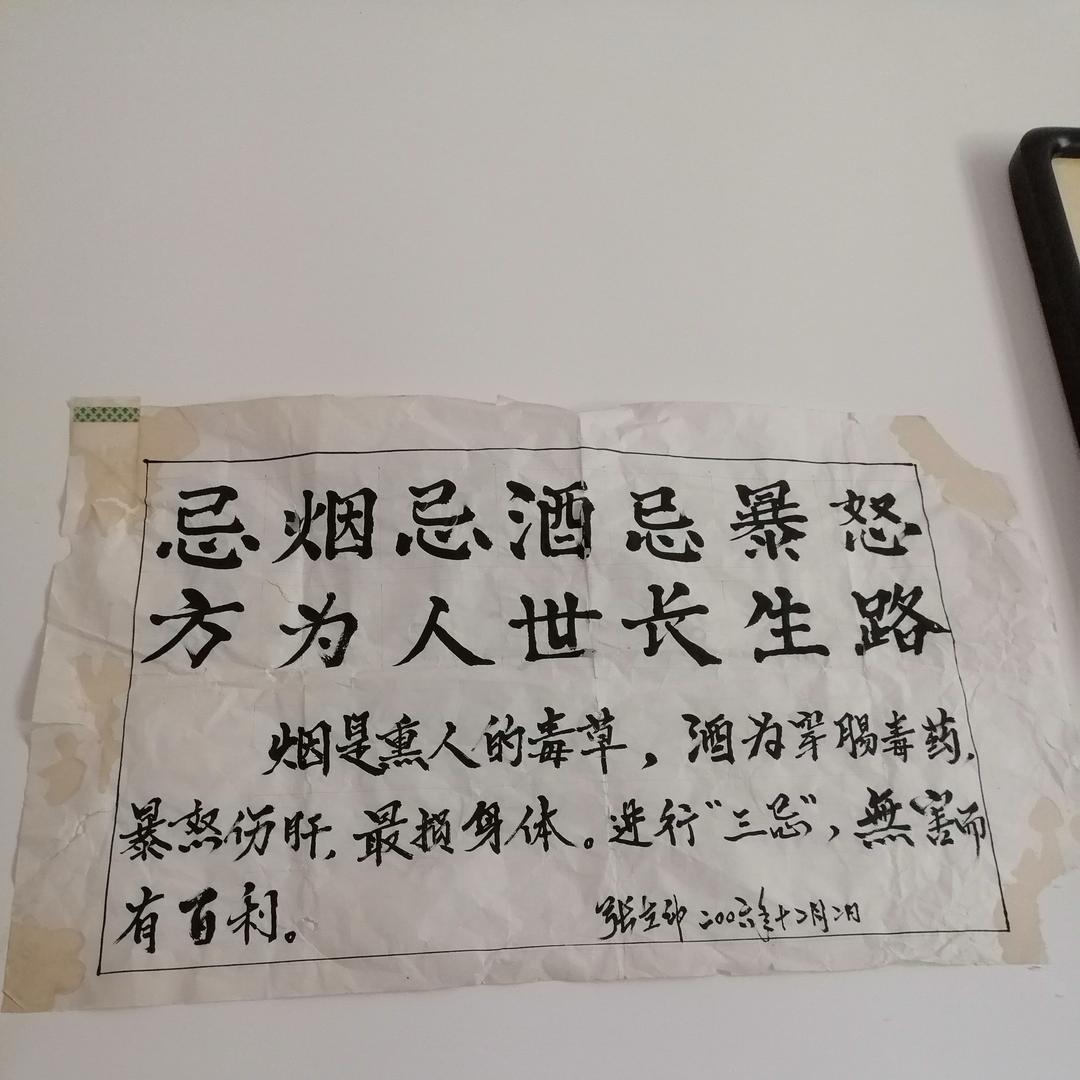 忌烟忌酒忌暴怒
方为人世长生路
烟是熏人的毒草，酒为穿肠毒药，
暴怒伤肝，最损身体。进行“三忌”，無害而
有百利。
张 二00六年十二月二日